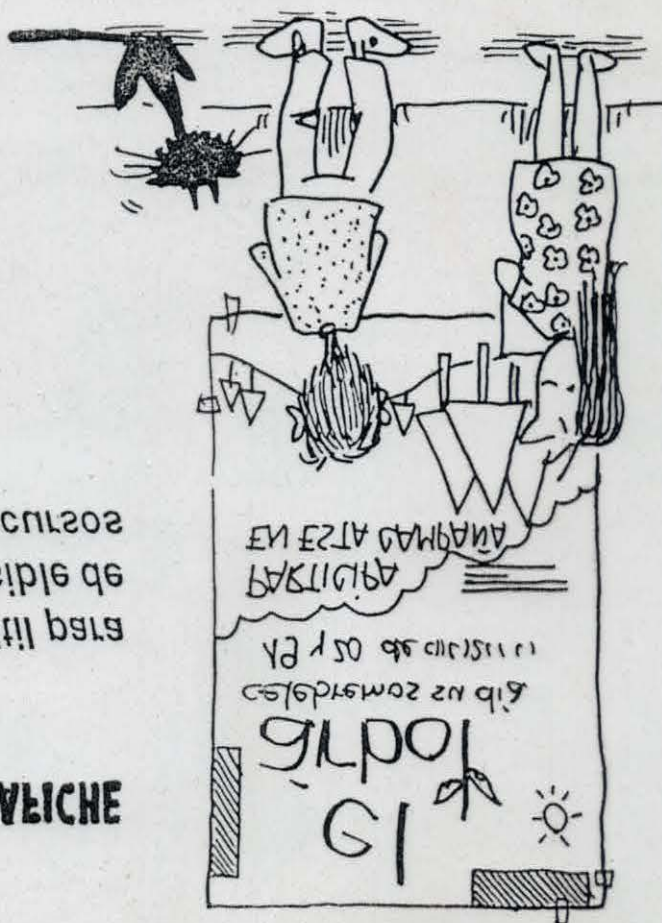 AFICHE
til para
sible de
cursos
El
árbol
celebremos su día
19 y 20 de
PARTICIPA
EN ESTA CAMPAÑA